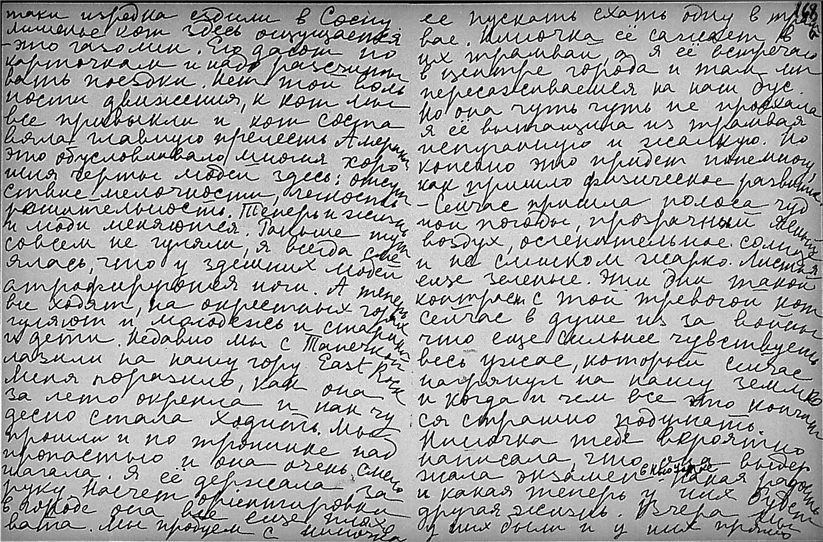 таки изредка ездили в Сосны
лишенье кот здесь ощущается
- это газолин. Его дают по
карточкам и надо рассчиты
вать поездки. Нет той воль
ности движения, к кот мы
все привыкли и кот соста
вляла главную прелесть Америки
это обусловливало многия хоро
шия черты людей здесь: отсут
ствие мелочности, честность
решительность. Теперь и жизнь
и люди меняются. Раньше тут
совсем не гуляли; я всегда сме
ялась, что у здешних людей
атрофируются ноги. А теперь
все ходят, на окрестных горах
гуляют и молодежь и старики
и дети. Недавно мы с Танечкой
лазили на нашу гору East Rock
Меня поразило, как она
за лето окрепла и как чу
десно стала ходить. Мы
прошли и по тропинке над
пропастью и она очень смело
шагала. Я её держала за
руку. Насчет ориентировки
в городе она все еще плохо
вата. Мы пробуем с Ниночкой
168
ее пускать ехать одну в трам
вае. Ниночка её сажает в
их трамвай, а я её встречаю
в центре города и там мы
пересаживаемся на наш бус.
Но она чуть чуть не проехала
я её вытащила из трамвая
испуганную и жалкую. Но
конечно это придет понемногу,
как пришло физическое развитие
- Сейчас пришла полоса чуд
ной погоды, прозрачный
воздух, ослепительное солнце
и не слишком жарко. Листья
еще зеленые. Эти дни такой
контраст с той тревогой кот
сейчас в душе из за войны
что еще сильнее чувствуешь
весь ужас, который сейчас
нагрянул на нашу землю
и когда и чем все это кончит
ся страшно подумать.
Ниночка тебе вероятно
написала, что она выдер
жала экзамен. Какая радость
и какая теперь у них будет
другая жизнь. Вчера мы
у них были и у них прямо